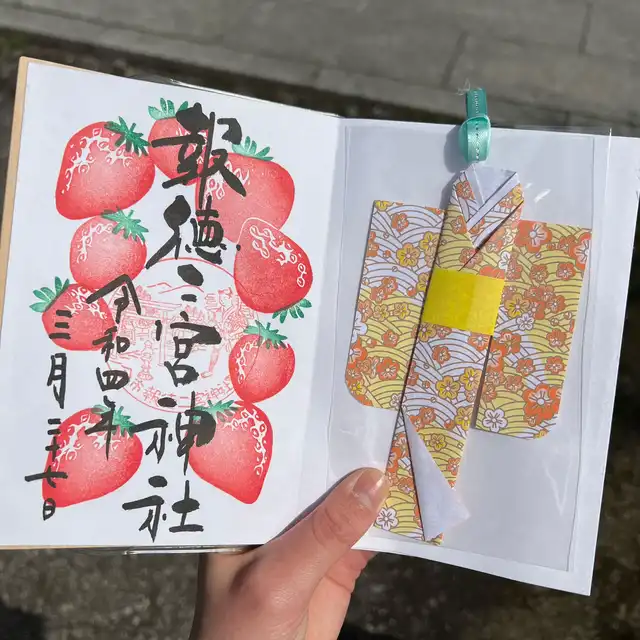 報徳二宮神社
令和四年
三月二十七日